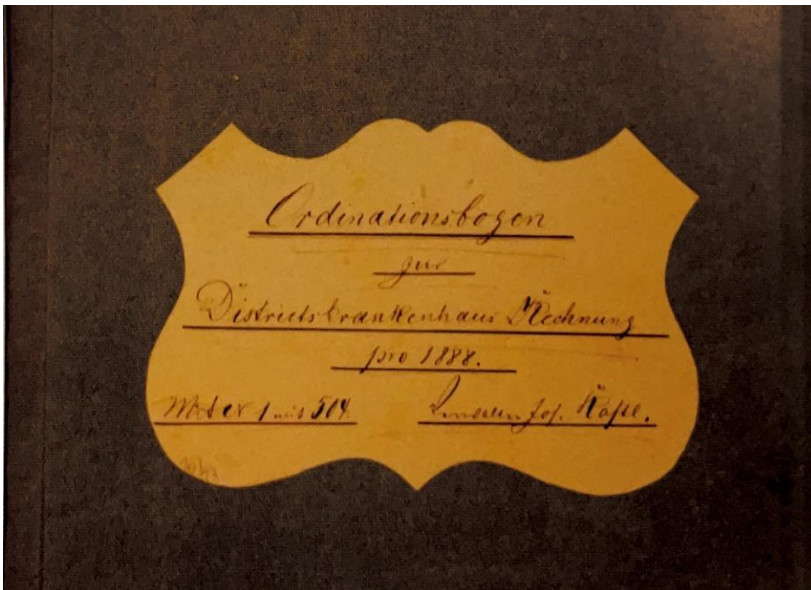 Ordinationsbogen
zur
Districtskrankenhaus Rechnung
pro 1888.
1 mit 504. Jos.